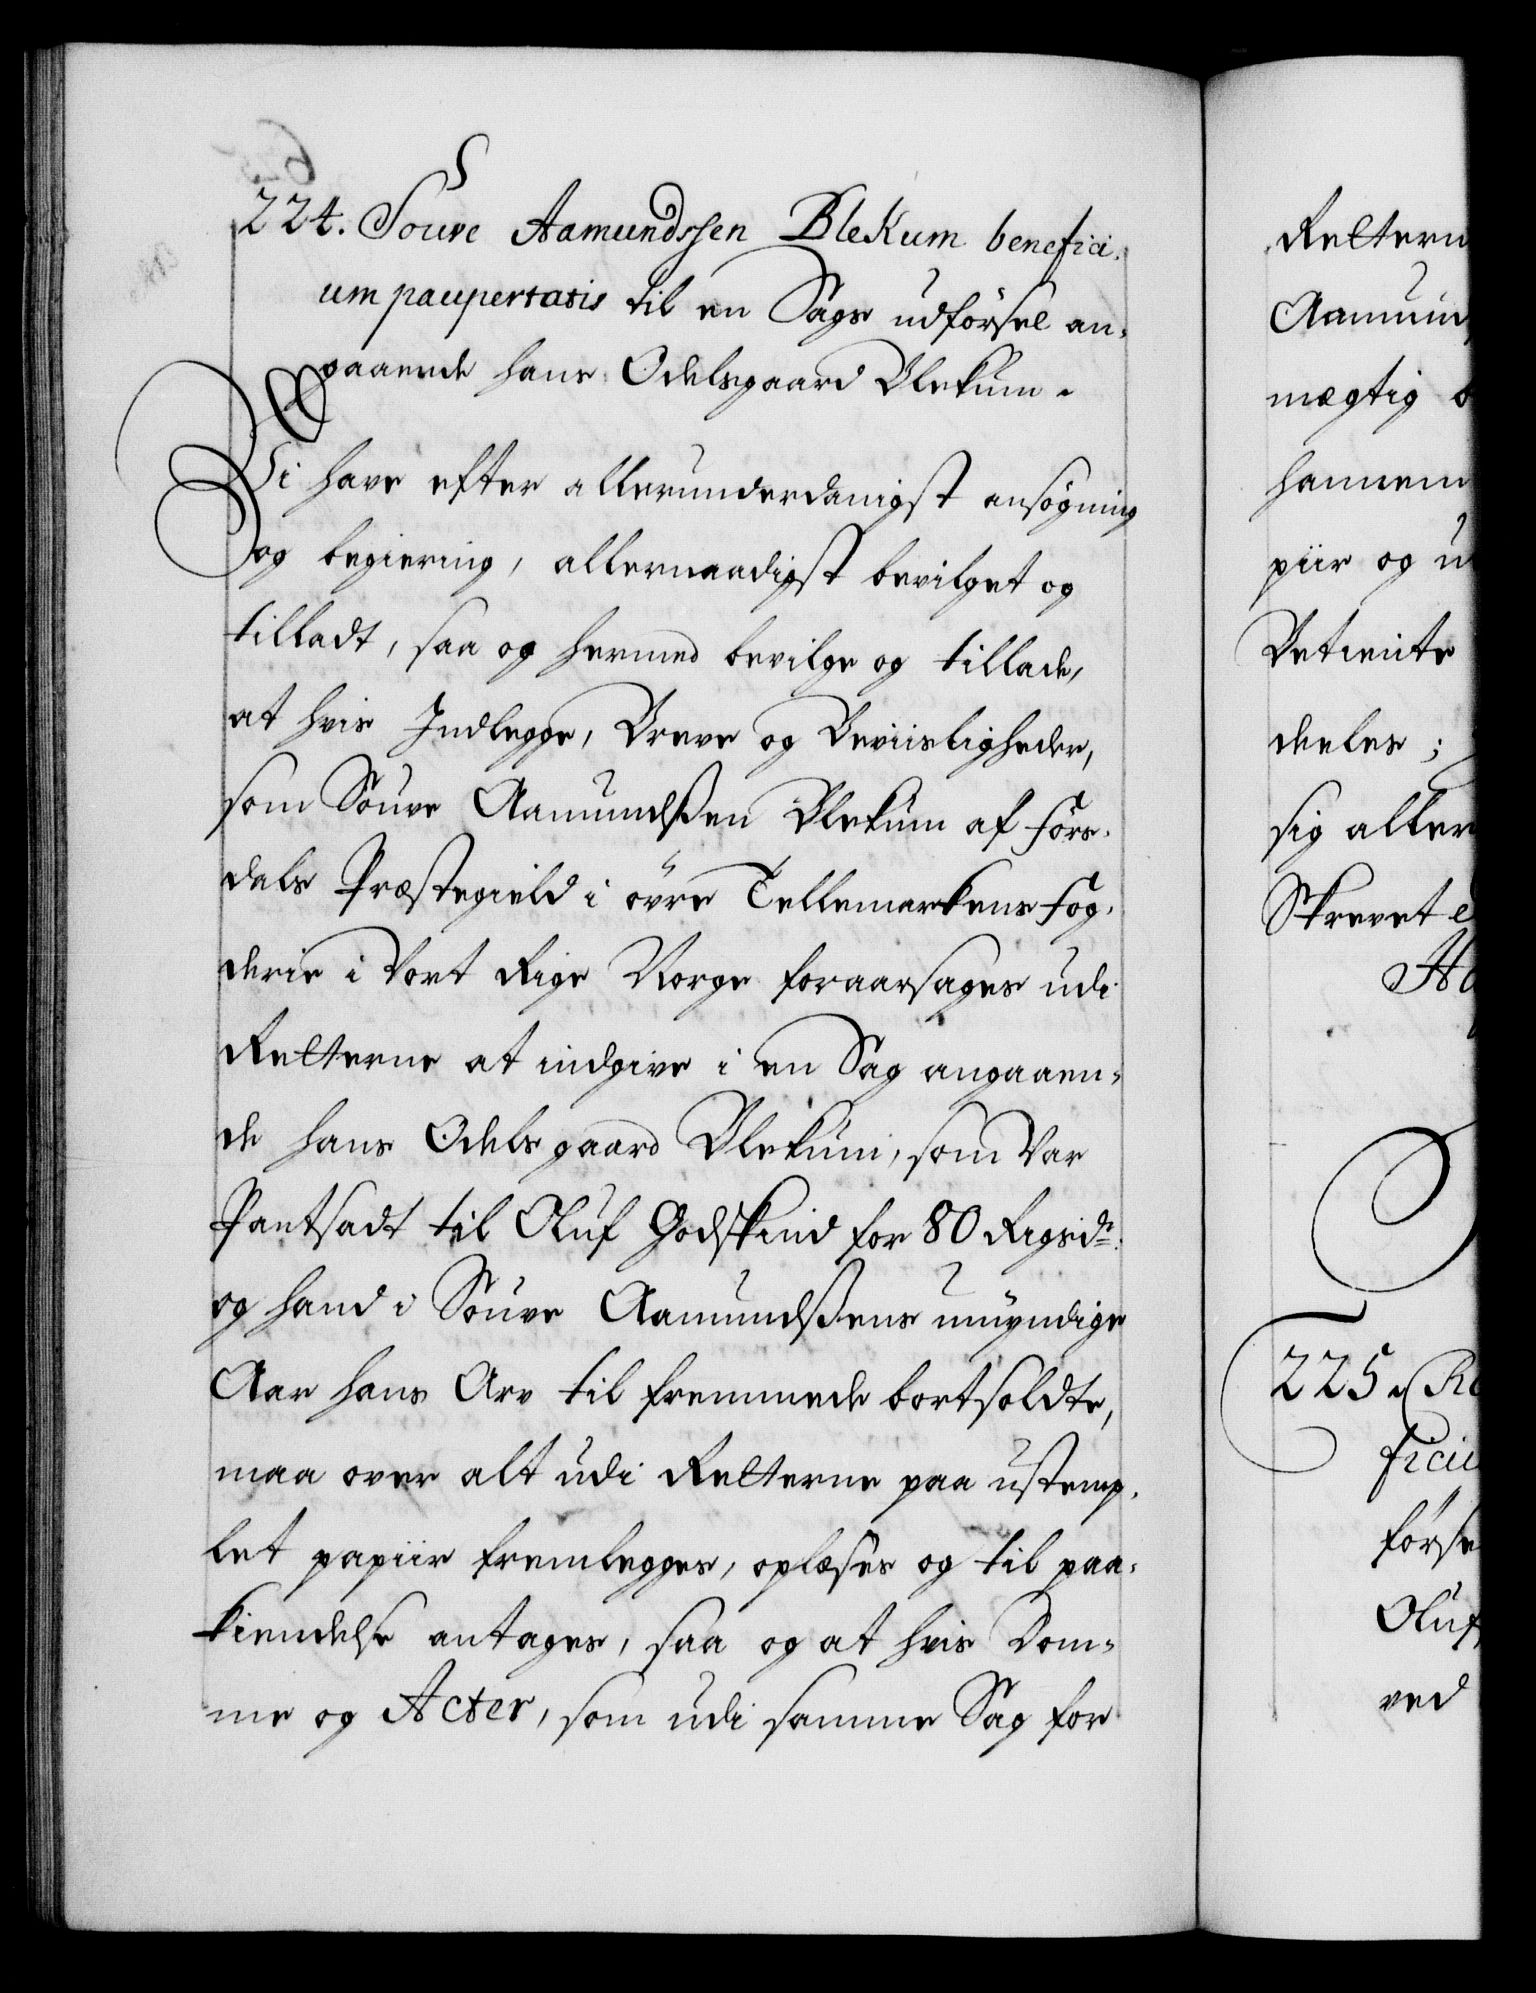 224. Souve Aamundssen Blekum benefici-
um paupertatis til en Sags udförsel an-
gaaende hans Odelsgaard Blekum.
Vi have efter allerunderdanigst ansögning
og begiering, allernaadigst bevilget og
tilladt, saa og hermed bevilge og tillade,
at hvis Indlegge, Breve og Beviisligheder,
som Souve Aamundsßen Blekum af Förs-
dals Præstegield i övre Tellemarkens Fog-
derie i Vort Rige Norge foraarsages udi
Retterne at indgive i en Sag angaaen-
de hans Odels gaard Blekum, som var
Pantsadt til Oluf Godskind for 80 Rigsdr.
og hand i Souve Aamundsßens umyndige
Aar hans Arv til fremmede bortsoldte,
maa over alt udi Retterne paa ustemp-
let papiir fremlegges, oplæses og til paa-
kiendelse antages, saa og at hvis Dom-
me og Acter, som udi samme Sag for
Rettern
Aamund
mægtig
hannem
piir og
deeles;
sig aller
Skrevet
225.
ficiu
førse
Oluf
ved